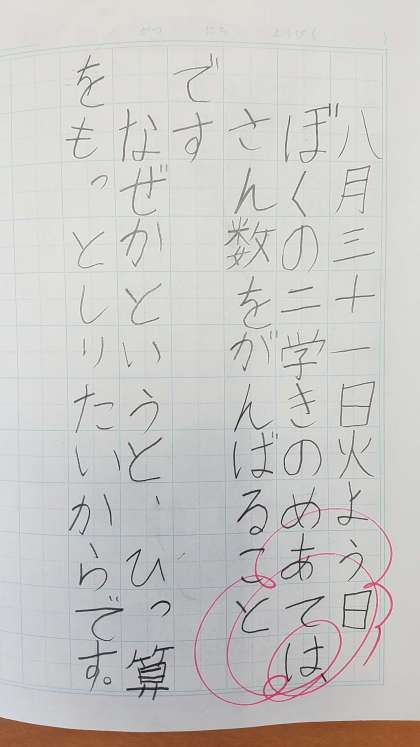 八月三十一日火よう日
ぼくの二学きのめあては、
さん数をがんばること
です
なぜかというと、ひっ算
をもっとしりたいからです。